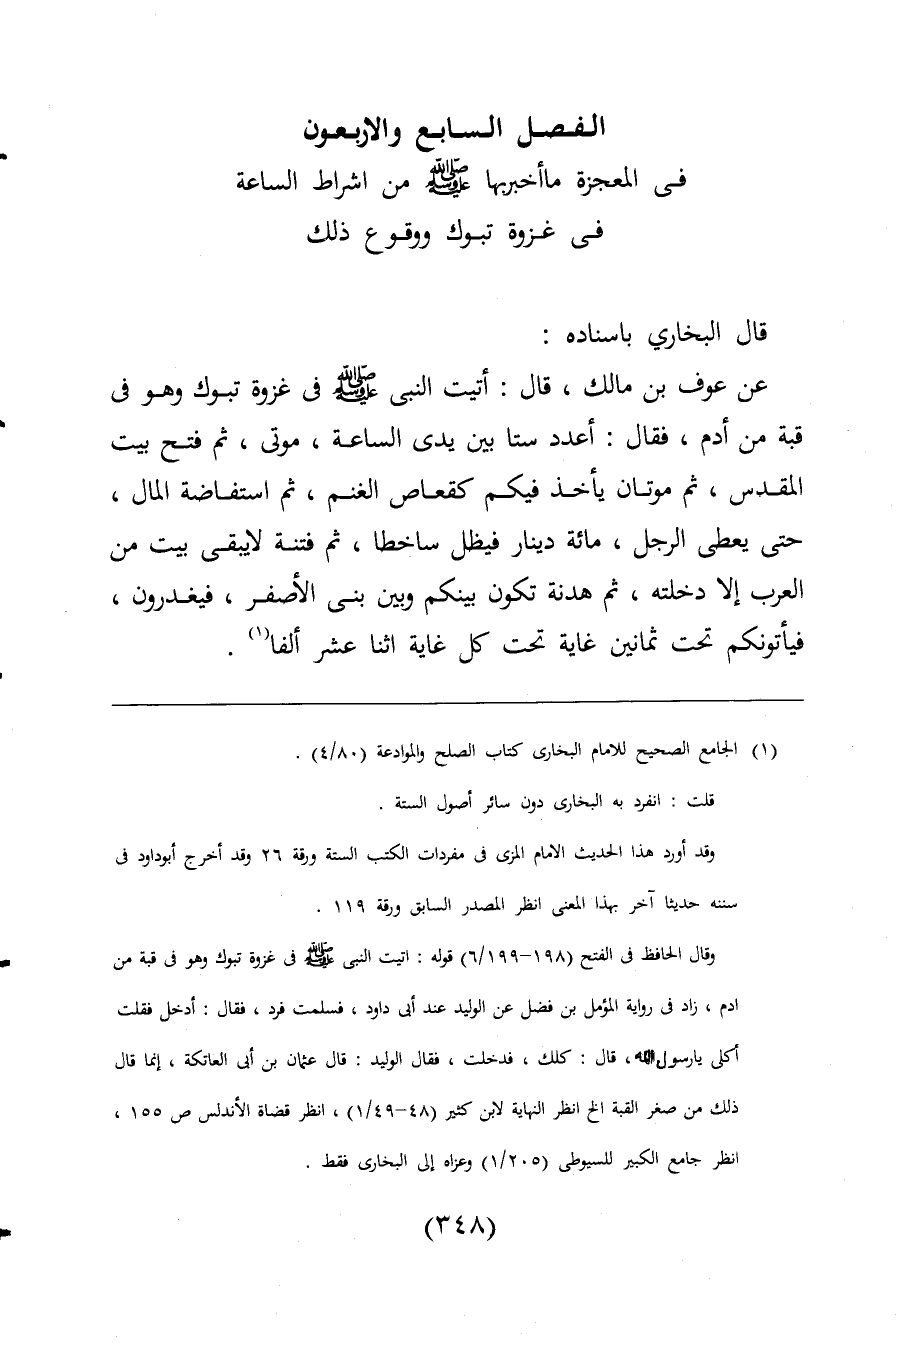 الفصل السابع والاربعون
فى المعجزة ماأخبربها ﷺ من اشراط الساعة
فى غزوة تبوك ووقوع ذلك
قال البخاري باسناده :
عن عوف بن مالك ، قال : أتيت النبى ﷺ فى غزوة تبوك وهو فى
قبة من أدم ، فقال : أعدد ستا بين يدى الساعة ، موتى ، ثم فتح بيت
المقدس ، ثم موتان يأخذ فيكم كقعاص الغنم ، ثم استفاضة المال ،
حتى يعطى الرجل ، مائة دينار فيظل ساخطا ، ثم فتنة لايبقى بيت من
العرب إلا دخلته ، ثم هدنة تكون بينكم وبين بنى الأصفر ، فيغدرون ،
فيأتونكم تحت ثمانين غاية تحت كل غاية اثنا عشر ألفا(١) .
(١) الجامع الصحيح للامام البخارى كتاب الصلح والموادعة (٤/٨٠) .
قلت : انفرد به البخارى دون سائر أصول الستة .
وقد أورد هذا الحديث الامام المزى فى مفردات الكتب الستة ورقة ٢٦ وقد أخرج أبوداود فى
سننه حديثا آخر بهذا المعنى انظر المصدر السابق ورقة ١١٩ .
وقال الحافظ فى الفتح (١٩٨-٦/١٩٩) قوله : اتيت النبى ﷺ فى غزوة تبوك وهو فى قبة من
ادم ، زاد فى رواية المؤمل بن فضل عن الوليد عند أبى داود ، فسلمت فرد ، فقال : أدخل فقلت
أكلى يارسول الله ، قال : كلك ، فدخلت ، فقال الوليد : قال عثمان بن أبى العاتكة ، إنما قال
ذلك من صغر القبة الخ انظر النهاية لابن كثير (٤٨-١/٤٩) ، انظر قضاة الأندلس ص ١٥٥ ،
انظر جامع الكبير للسيوطى (١/٢٠٥) وعزاه إلى البخارى فقط .
(٣٤٨)